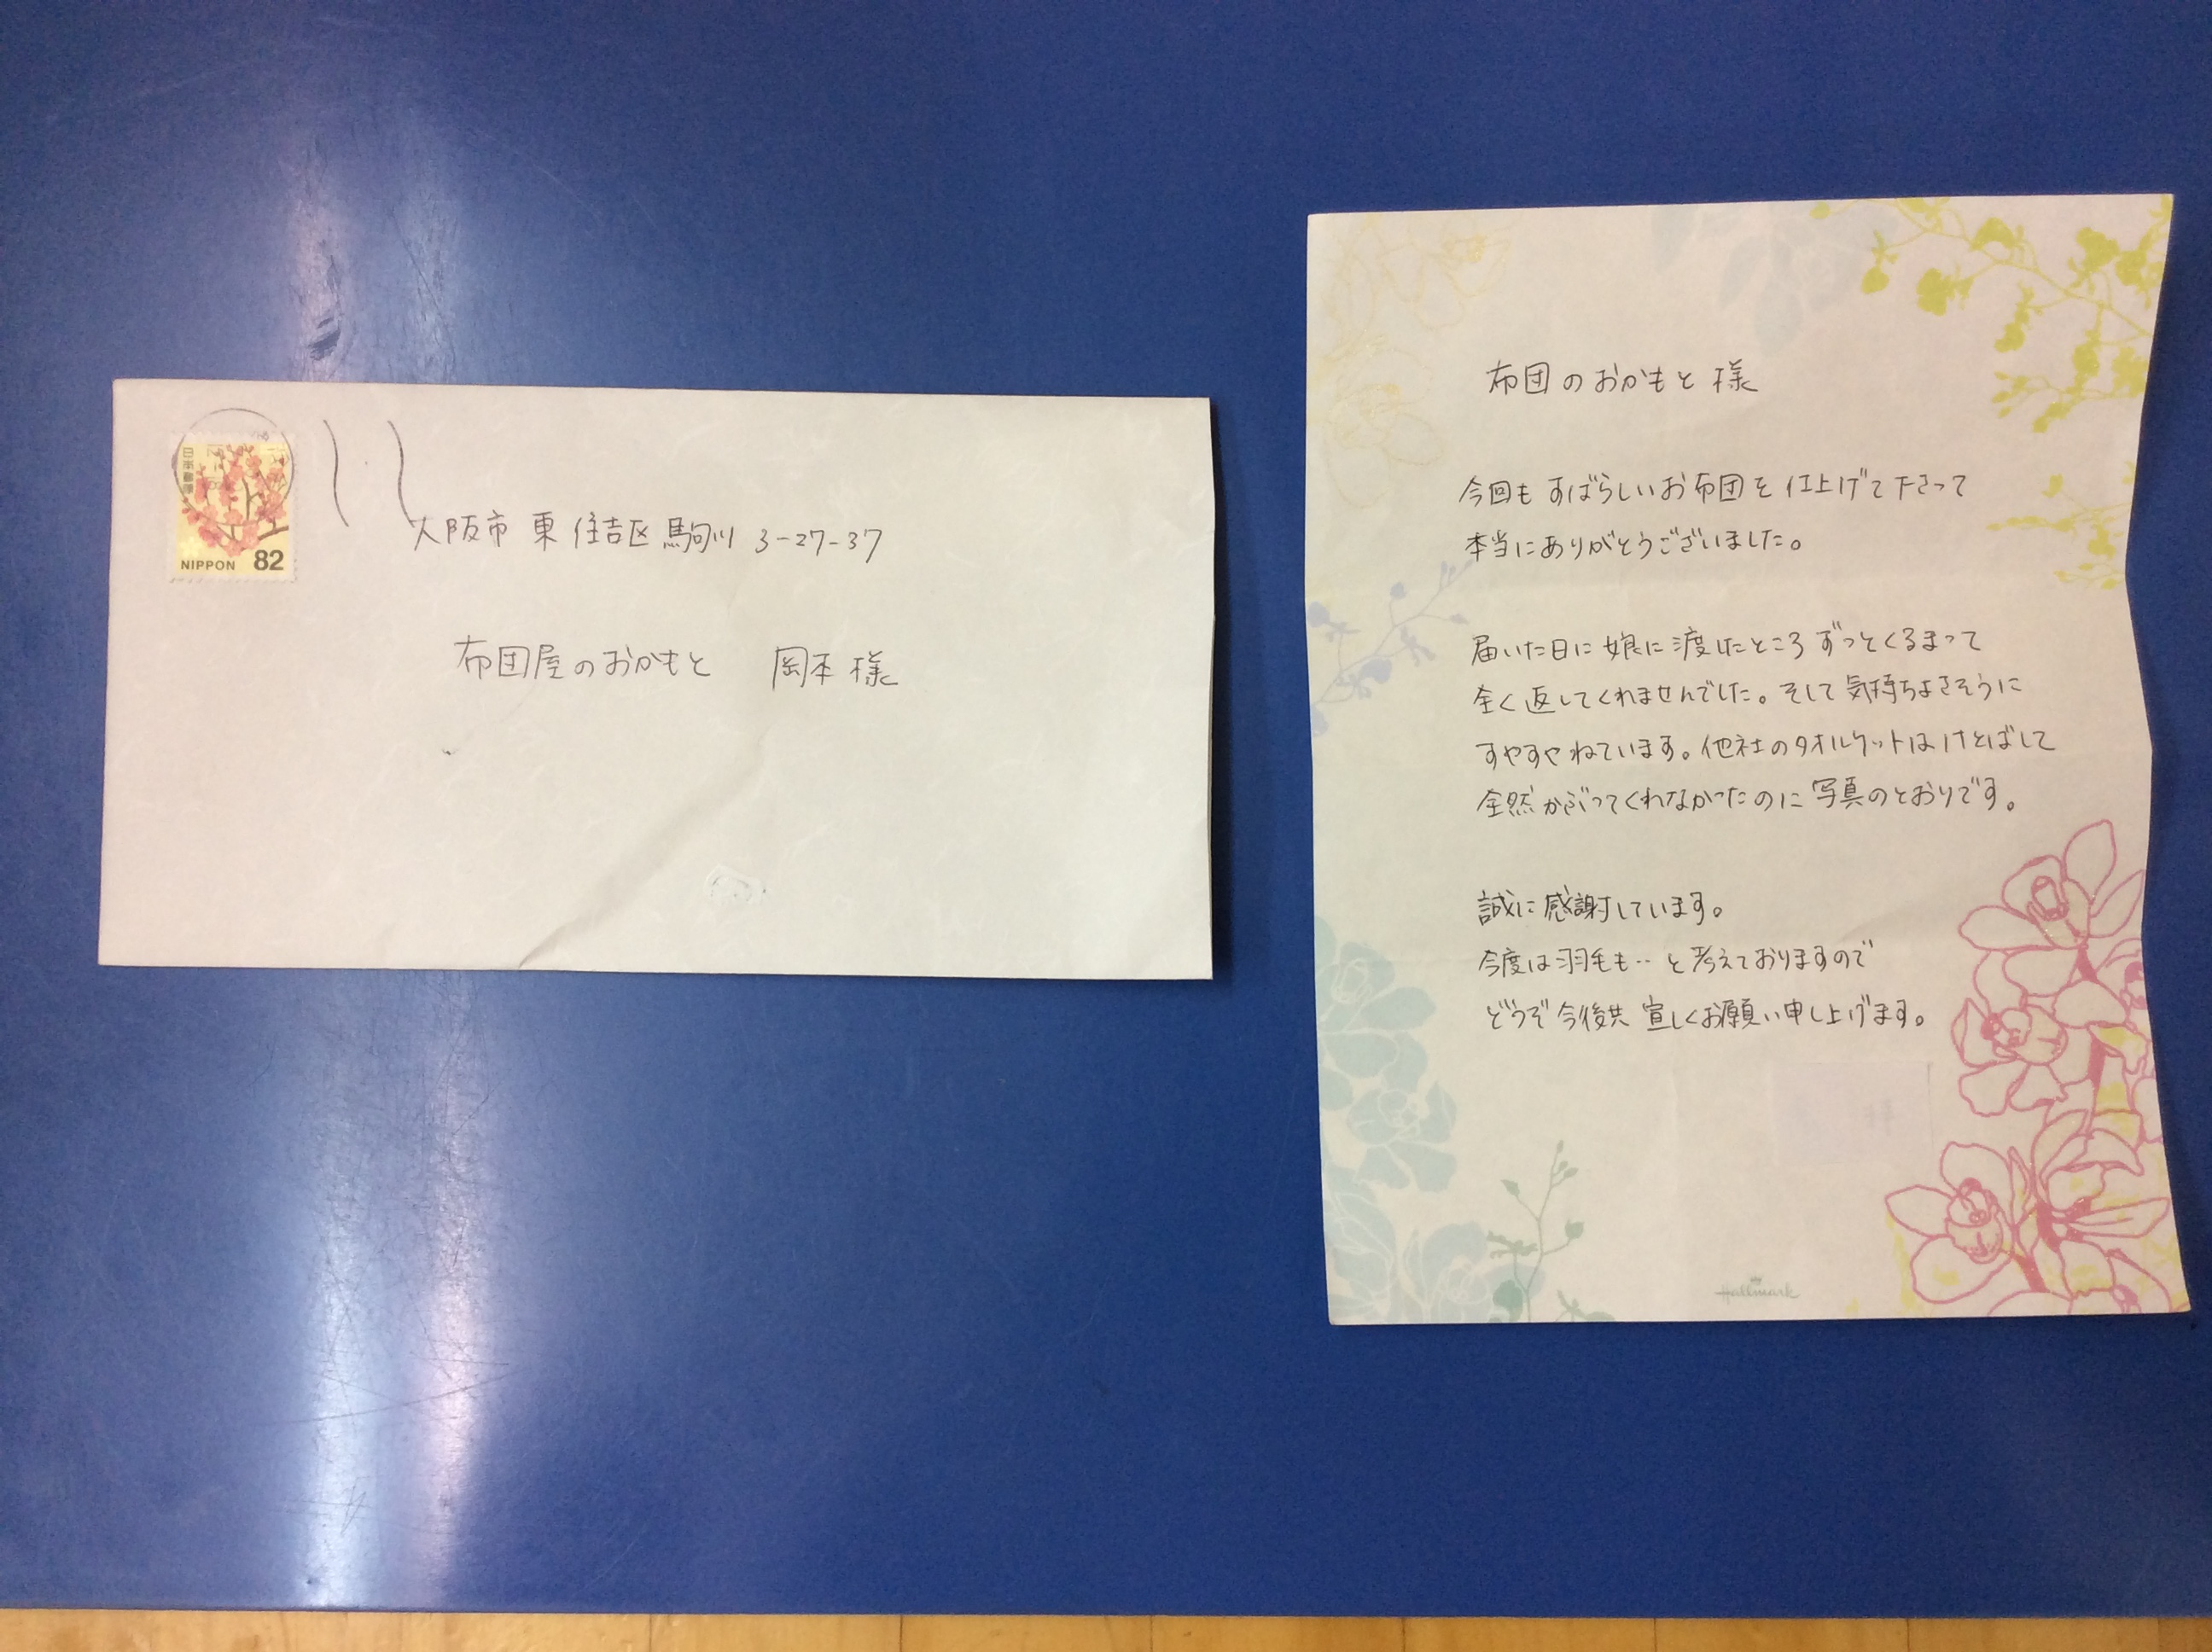 日本郵便
NIPPON 82
大阪市 東住吉区 駒川 3-27-37
布団屋のおかもと 岡本 様
布団のおかもと 様
今回も すばらしいお布団を 仕上げて下さって
本当にありがとうございました。
届いた日に 娘に 渡したところ ずっとくるまって
全く返してくれませんでした。そして 気持ちよさそうに
すやすや ねています。他社のタオルケットは けとばして
全然 かぶってくれなかったのに 写真のとおりです。
誠に 感謝しています。
今度は 羽毛も‥ と 考えておりますので
どうぞ 今後共 宜しくお願い申し上げます。
Hallmark